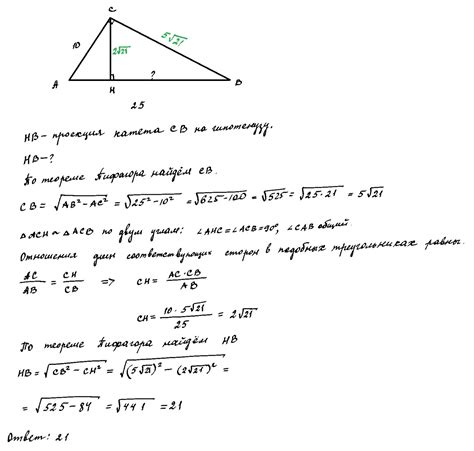 C
10
2√21
5√21
A
H
?
B
25
HB - проекция катета CB на гипотенузу.
HB - ?
По теореме Пифагора найдём CB.
CB = √(AB² - AC²) = √(25² - 10²) = √(625 - 100) = √525 = √(25·21) = 5√21
△ACH ~ △ACB по двум углам: ∠AHC = ∠ACB = 90°, ∠CAB общий.
Отношения длин соответствующих сторон в подобных треугольниках равны.
AC/AB = CH/CB => CH = AC·CB/AB
CH = 10·5√21/25 = 2√21
По теореме Пифагора найдём HB
HB = √(CB² - CH²) = √((5√21)² - (2√21)²) =
= √(525 - 84) = √441 = 21
Ответ: 21